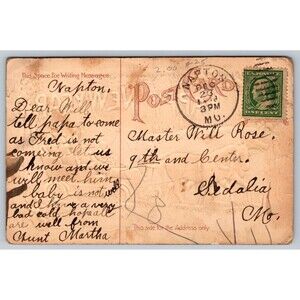 This Space For Writing Messages
Napton,
Dear Will
tell papa to come
as Fred is not
comeing let us
know and we
will meet him
baby is not well
and I have a very
bad cold hope all
are well from
Aunt Martha
2.00
Post
NAPTON
DEC
3PM
MO.
Master Will Rose.
9th and Center.
Sedalia
Mo.
This side for the Address only